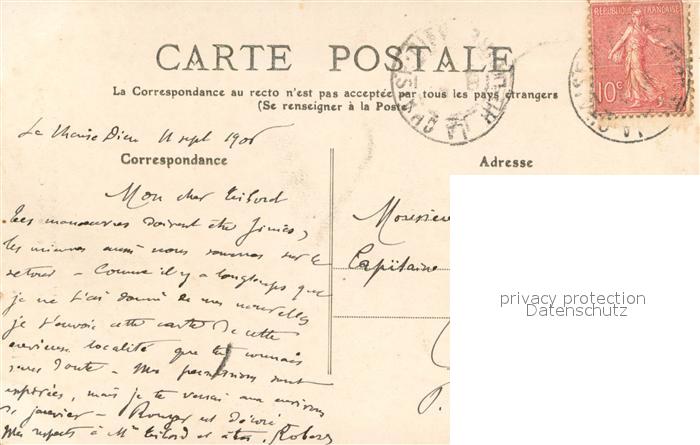 CARTE POSTALE
RÉPUBLIQUE FRANÇAISE
10c
La Correspondance au recto n'est pas acceptée par tous les pays étrangers
(Se renseigner à la Poste)
La Chaise Dieu 11 sept 1906
Correspondance
Adresse
Mon cher
Les manœuvres doivent être finies,
les miennes aussi nous sommes sur le
retour – Comme il y a longtemps que
je ne t'ai donné de mes nouvelles
je t'envoie cette carte de cette
localité que tu connais
sans doute – Mes permissions sont
mais je te verrai aux environs
de janvier – est décoré
Mes respects à Me et à toi.
Monsieur
Capitaine
privacy protection
Datenschutz